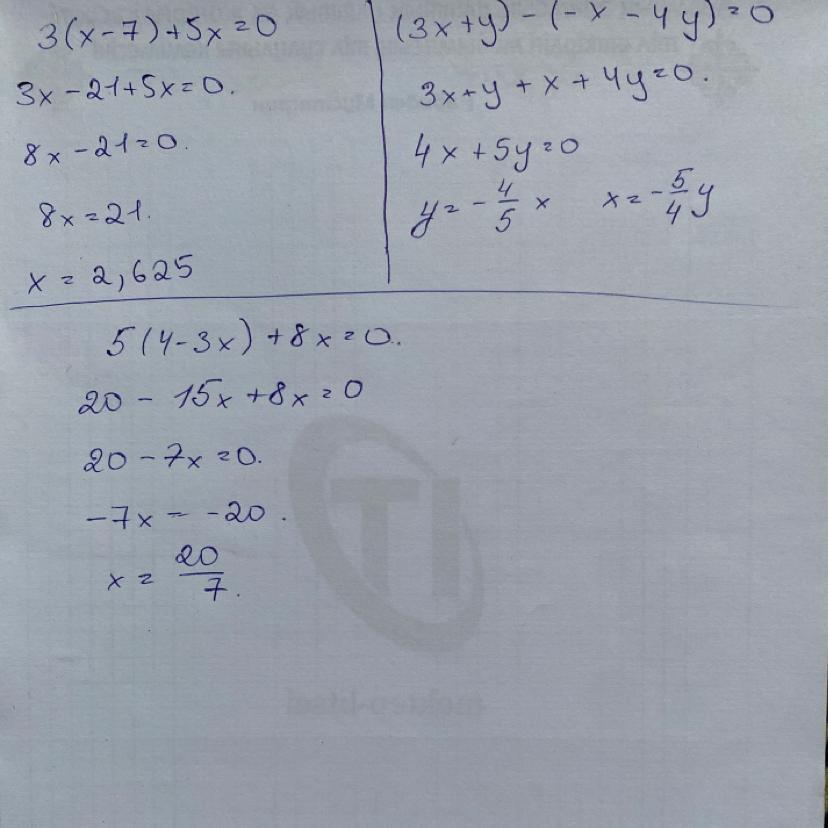 3(x-7)+5x=0
3x-21+5x=0.
8x-21=0.
8x=21.
x=2,625
(3x+y)-(-x-4y)=0
3x+y+x+4y=0.
4x+5y=0
y=-4/5 x x=-5/4 y
5(4-3x)+8x=0.
20-15x+8x=0
20-7x=0.
-7x=-20.
x=20/7.